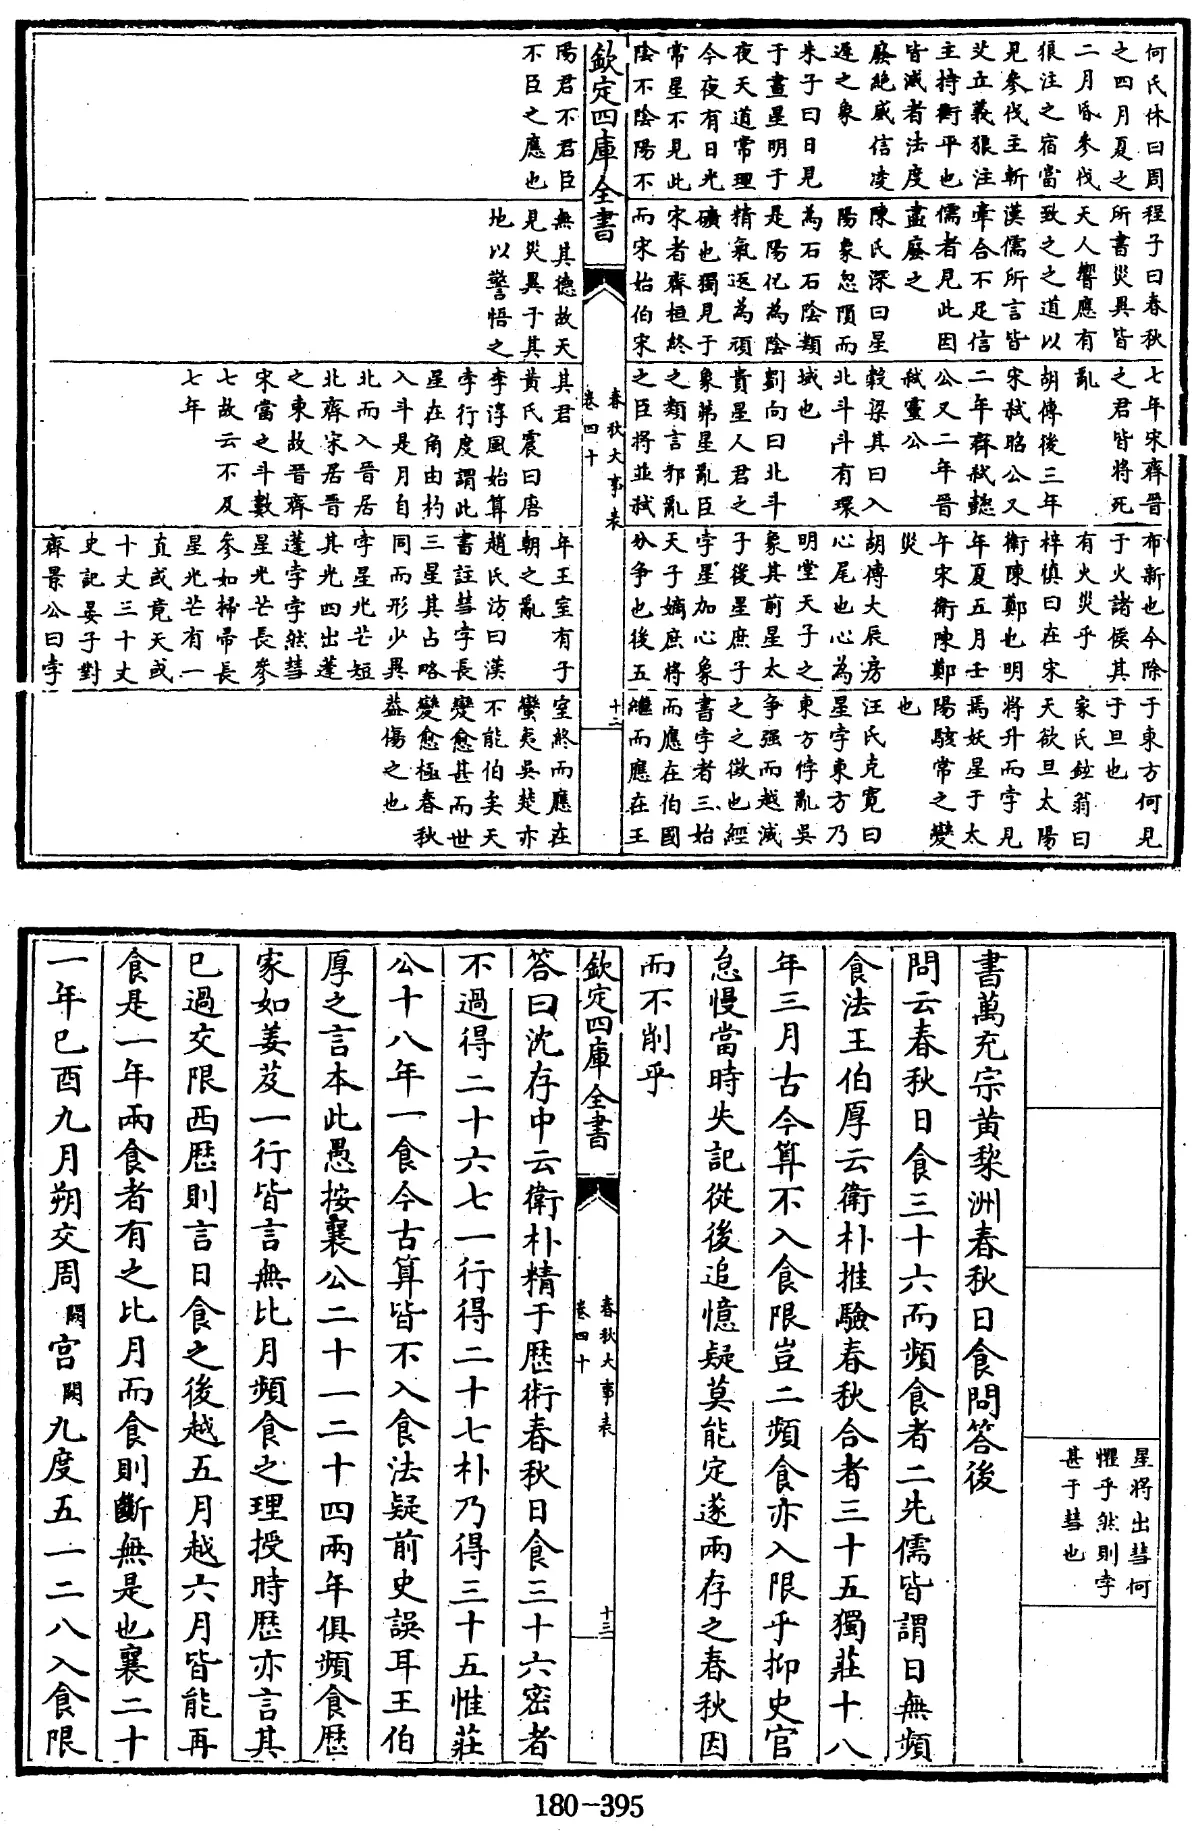 何氏休曰周
之四月夏之
二月昏參伐
狼注之宿當
見參伐主斬
艾立義狼注
主持衡平也
皆滅者法度
廢絶威信凌
遲之象
朱子曰日見
于晝星明于
夜天道常理
今夜有日光
常星不見此
陰不陰陽不
程子曰春秋
所書災異皆
天人響應有
致之之道以
漢儒所言皆
牽合不足信
儒者見此因
盡廢之
陳氏深曰星
陽象忽隕而
為石石陰類
是陽化為陰
精氣返為頑
礦也獨見于
宋者齊桓終
而宋始伯宋
七年宋齊晉
之君皆將死
亂
胡傳後三年
宋弑昭公又
二年齊弑懿
公又二年晉
弑靈公
穀梁其曰入
北斗斗有環
域也
劉向曰北斗
貴星人君之
象茀星亂臣
之類言邪亂
之臣將並弑
布新也今除
于火諸侯其
有火災乎
梓慎曰在宋
衛陳鄭也明
年夏五月壬
午宋衛陳鄭
災
胡傳大辰房
心尾也心為
明堂天子之
象其前星太
子後星庶子
孛星加心象
天子嫡庶將
分爭也後五
于東方何見
于旦也
家氏鉉翁曰
天欲旦太陽
將升而孛見
焉妖星于太
陽駭常之變
也
汪氏克寛曰
星孛東方乃
東方悖亂吳
爭强而越滅
之之徵也經
書孛者三始
而應在伯國
繼而應在王
欽定四庫全書
春秋大事表
卷四十
十二
陽君不君臣
不臣之應也
無其德故天
見災異于其
地以警悟之
其君
黃氏震曰唐
李淳風始算
孛行度謂此
星在角由杓
入斗是月自
北而入晉居
北齊宋居晉
之東故晉齊
宋當之斗數
七故云不及
七年
年王室有子
朝之亂
趙氏汸曰漢
書註彗孛長
三星其占略
同而形少異
孛星光芒短
其光四出蓬
蓬孛孛然彗
星光芒長參
參如掃帚長
星光芒有一
直或竟天或
十丈三十丈
史記晏子對
齊景公曰孛
室終而應在
蠻夷吳楚亦
不能伯矣天
變愈甚而世
變愈極春秋
益傷之也
星將出彗何
懼乎然則孛
甚于彗也
書萬充宗黄棃洲春秋日食問答後
問云春秋日食三十六而頻食者二先儒皆謂日無頻
食法王伯厚云衛朴推驗春秋合者三十五獨莊十八
年三月古今算不入食限豈二頻食亦入限乎抑史官
怠慢當時失記從後追憶疑莫能定遂兩存之春秋因
而不削乎
欽定四庫全書
春秋大事表
卷四十
十三
答曰沈存中云衛朴精于歴術春秋日食三十六密者
不過得二十六七一行得二十七朴乃得三十五惟莊
公十八年一食今古算皆不入食法疑前史誤耳王伯
厚之言本此愚按襄公二十一二十四兩年俱頻食歴
家如姜岌一行皆言無比月頻食之理授時歴亦言其
已過交限西歴則言日食之後越五月越六月皆能再
食是一年兩食者有之比月而食則斷無是也襄二十
一年已酉九月朔交周闕宫闕九度五一二八入食限
180-395